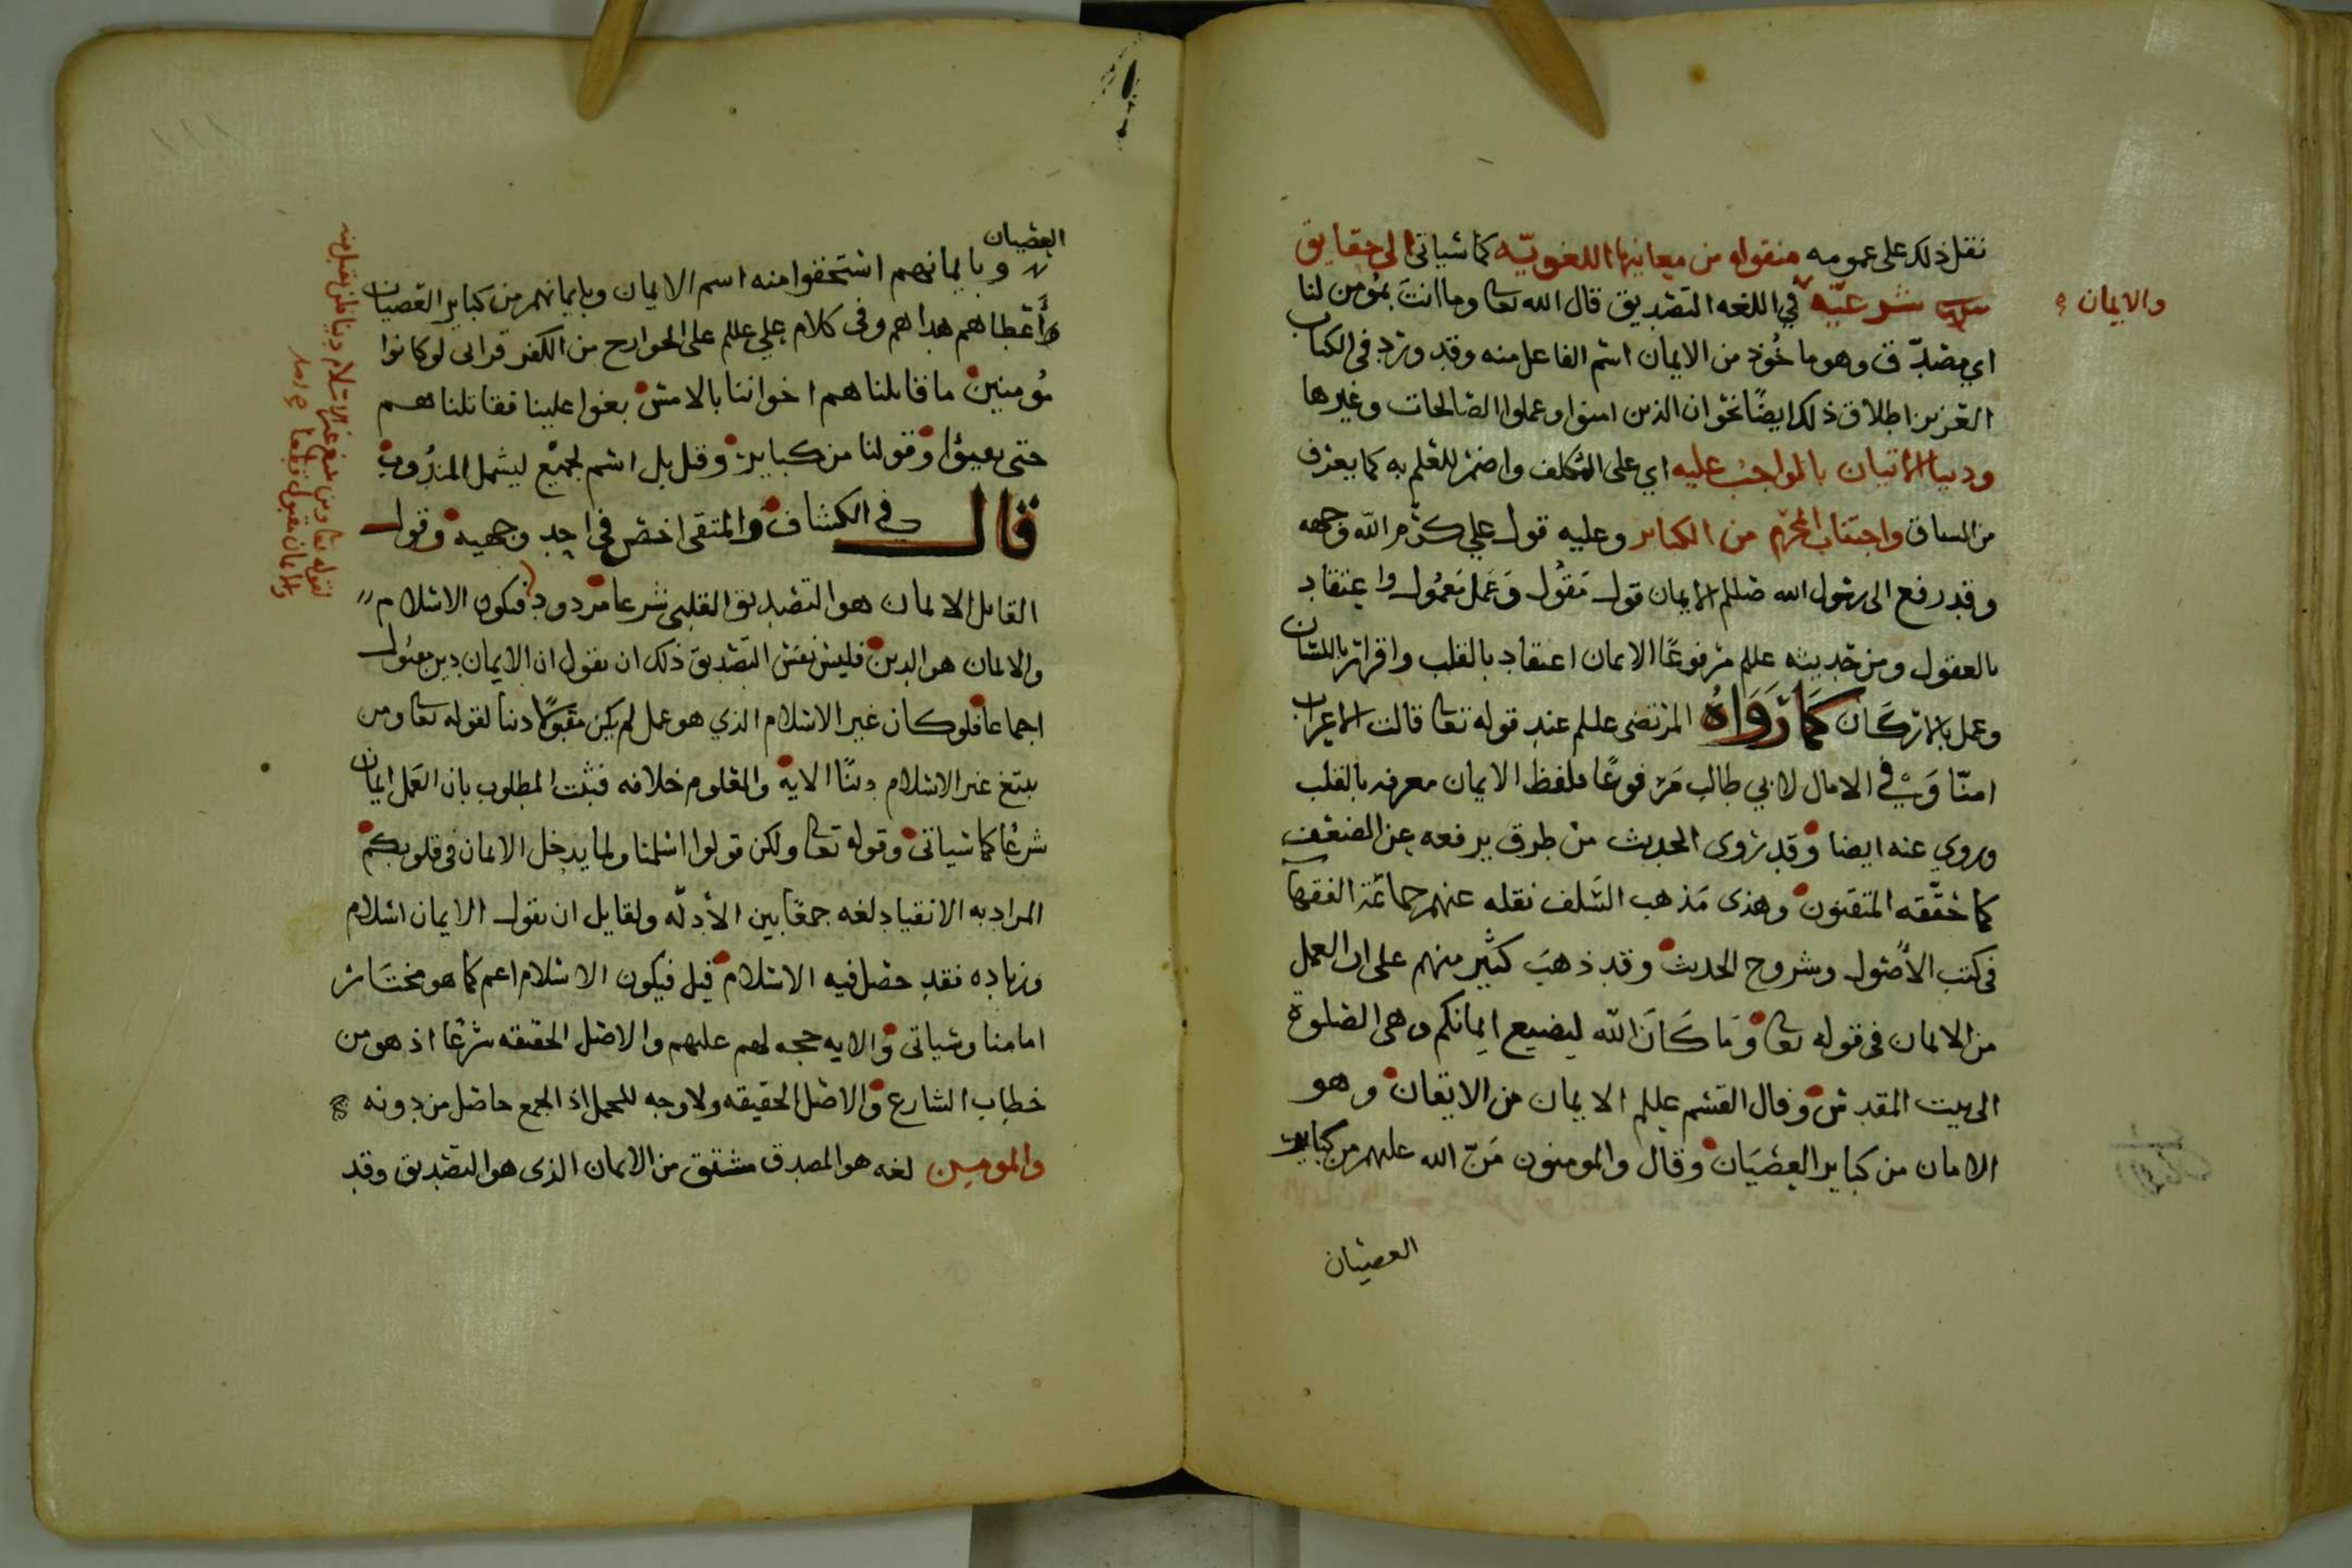 نقل ذلك على عمومه منقوله من معانيها اللغويّه كما سياتى الى حقايق
شرعيّه في اللغه التصديق قال الله تعا وما انت بمؤمن لنا
والايمان
اي مصدّق وهو ماخُوذ من الايمان اسم الفاعل منه وقد ورد فى الكتاب
العزيز اطلاق ذلك ايضًا نحو ان الذين امنوا وعملوا الصالحات وغيرها
ودينا الاتيان بالواجب عليه اي على المكلف واضمر للعلم به كما يعرف
من المساق واجتناب المحرّم من الكباير وعليه قول علي كرّم الله وجهه
وقد رفع الى رسول الله صللم الايمان قول مَقُول وَعَمل مَعمُول واعتقاد
بالعقول ومن حديثه عللم مرفوعًا الايمان اعتقاد بالقلب واقرار باللسان
وعمل بالاركان كَمَا رَوَاهُ المرتضى عللم عند قوله تعا قالت الاعراب
امنّا وَفي الامال لابي طالب مَرْفوعًا بلفظ الايمان معرفه بالقلب
وروي عنه ايضا وقد روى الحديث من طرق يرفعه عن الضعف
كما حقّقه المتقنون وهذى مَذهب السَلف نقله عنهم جماعَة الفقها
فى كتب الأصول وشروح الحديث وقد ذهبَ كثير منهم على ان العمل
من الايمان فى قوله تعا وَمَا كَانَ الله ليضيع ايمانكم وهى الصلوة
الى بيت المقدس وقال القسم عللم الايمان من الايقان وهو
الامان من كباير العصيَان وقال والمومنون مَنّ الله عليهم من كباير
العصيان
العصيان
وبايمانهم استحقوا منه اسم الايمان وبايمانهم من كباير العصيان
أعطاهم هداهم وفى كلام علي عللم على الخوارج من الكفر فروا لو كانوا
مُومنين ما قاتلناهم اخواننا بالامس بغوا علينا فقاتلناهم
حتى يفيؤا وقولنا من كباير وقل بل اسم لجميع ليشمل المندُوب
قال فى الكشاف والمتقى اخص فى احد وجهيه وقول
القايل الايمان هو التصديق القلبى شرعا مردود فيكون الاسلام
والايمان هو الدين فليس نفس التصديق ذلك ان نقول ان الايمان دين مقبول
اجماعا فلو كان غير الاسلام الذي هو عمل لم يكن مقبولًا دينا لقوله تعا ومن
يبتغ غير الاسلام دينًا الايه والمعلوم خلافه فثبت المطلوب بان العَمل ايمان
شرعًا كما سياتى وقوله تعا ولكن قولوا اسلمنا ولما يدخل الايمان فى قلوبكم
المراد به الانقياد لغه جمعًا بين الأدلّه ولقايل ان يقول الايمان اسلام
وزياده فقد حصل فيه الاسلام قيل فيكون الاسلام اعم كما هو مختار
امامنا وسياتى والايه حجه لهم عليهم والاصل الحقيقه شرعًا اذ هو من
خطاب الشارع والاصل الحقيقه ولا وجه للحمل اذ الجمع حاصل من دونه
والمومنين لغه هو المصدق مشتق من الايمان الذى هو التصديق وقد
لقوله تعا ومن يبتغ غير الاسلام دينا فلن يقبل منه
والايمان مقبول قطعا